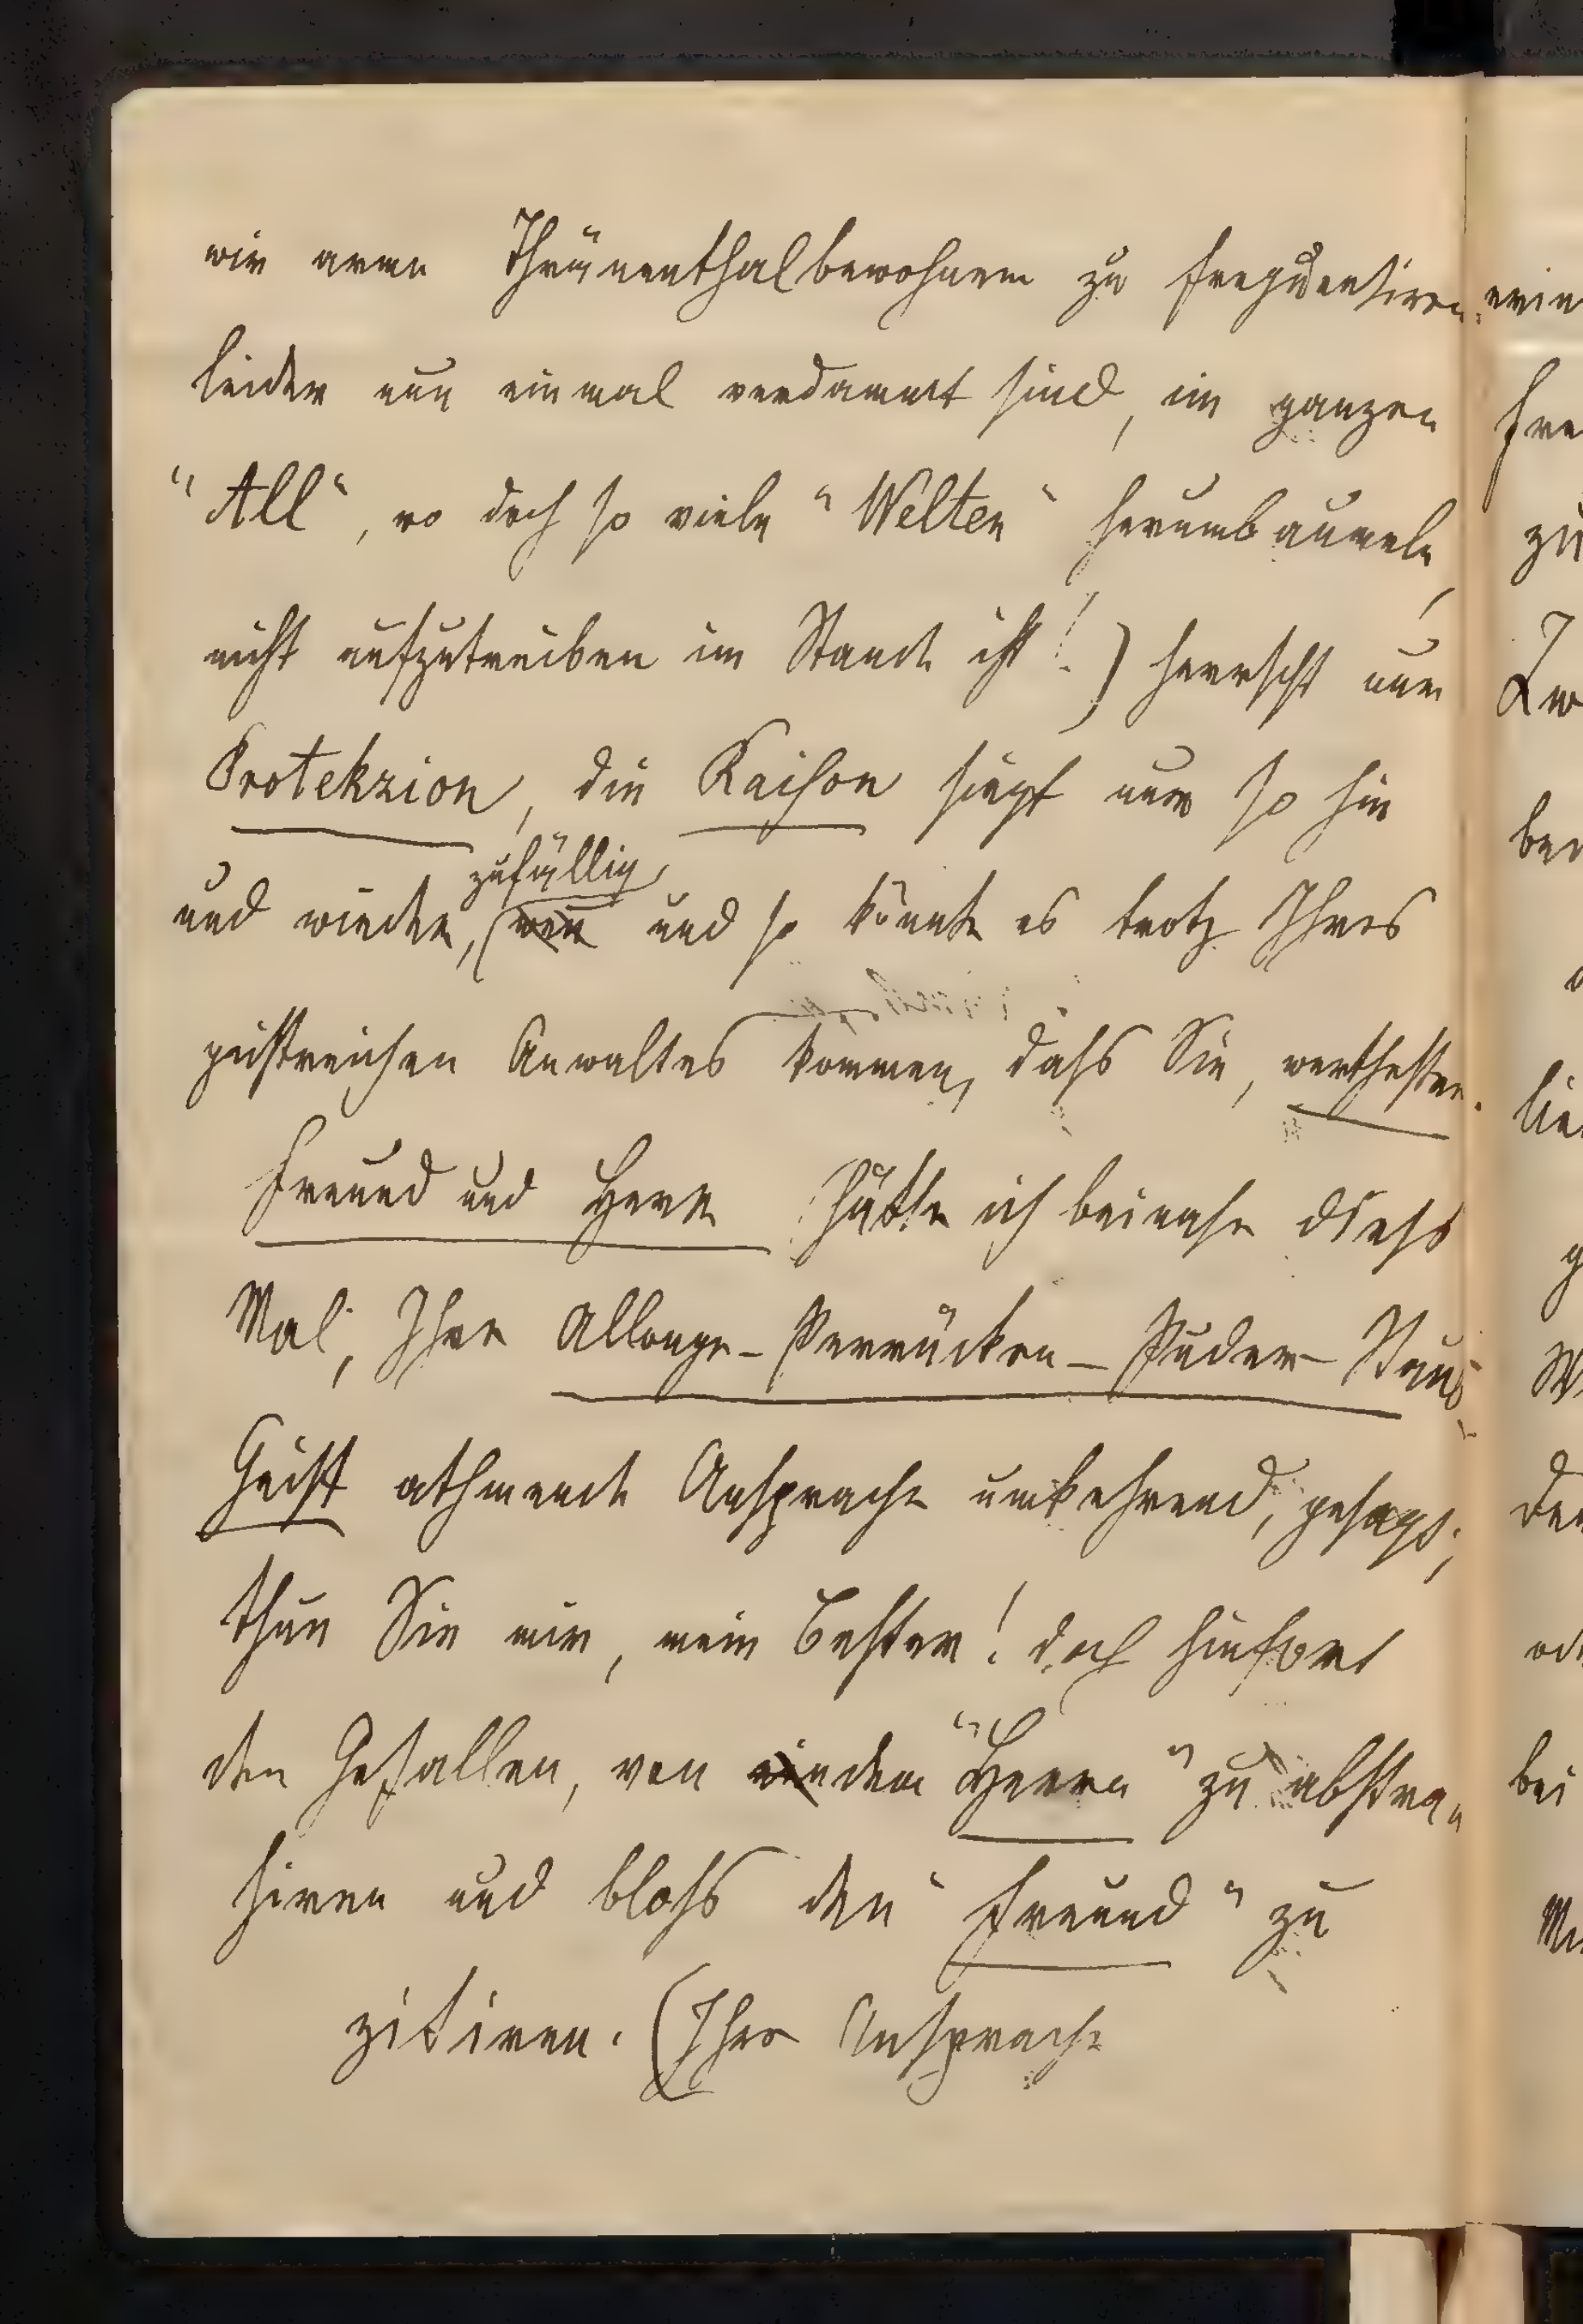 wir arme Thränenthalbewohner zu frequentiren
leider nun einmal verdammt sind, im ganzen
"All", wo doch so viele "Welten" herumbaumeln,
nicht aufzutreiben im Stande ist!) herrscht nur
Protekzion, die Raison siegt nur so hin
und wieder, zufällig und so könnte es trotz Ihres
geistreichen Anwaltes kommen, dass Sie, werthester
Freund und Herr (hätte ich beinahe diess
Mal, Ihre Allonge-Perrücken-Puder-Staub-
Geist athmende Ansprache umkehrend, gesagt;
thun Sie mir, mein Bester! doch hinfort
den Gefallen, von dem "Herrn" zu abstra-
hiren und bloss den "Freund" zu
zitiren. (Ihre Ansprache